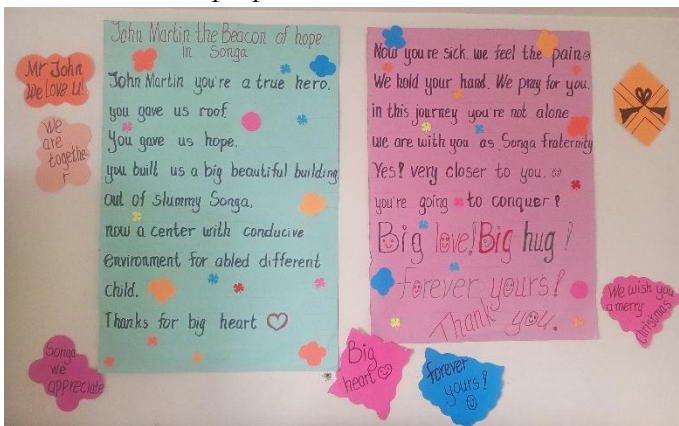 John Martin the Beacon of hope
in Songa
John Martin you're a true hero.
you gave us roof.
You gave us hope.
you built us a big beautiful building
out of slummy Songa.
now a center with conducive
environment for abled different
child.
Thanks for big heart
Now you're sick we feel the pain
We hold your hand. We pray for you.
in this journey you're not alone
we are with you as Songa fraternity
Yes! very closer to you.
you're going to conquer!
Big love! Big hug!
Forever yours!
Thank you.
Mr John
We love u!
We
are
togethe
r
Songa
we
appreciate
Big
heart
forever
yours!
We wish you
a merry
christmas